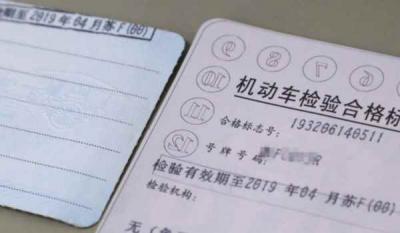 至2019年04月苏F(00)
6 7 8 9
10
11
12
机动车检验合格标
合格标志号：193206140511
号牌号码：
检验有效期至2019年04月苏F(00)
检验机构：
无（